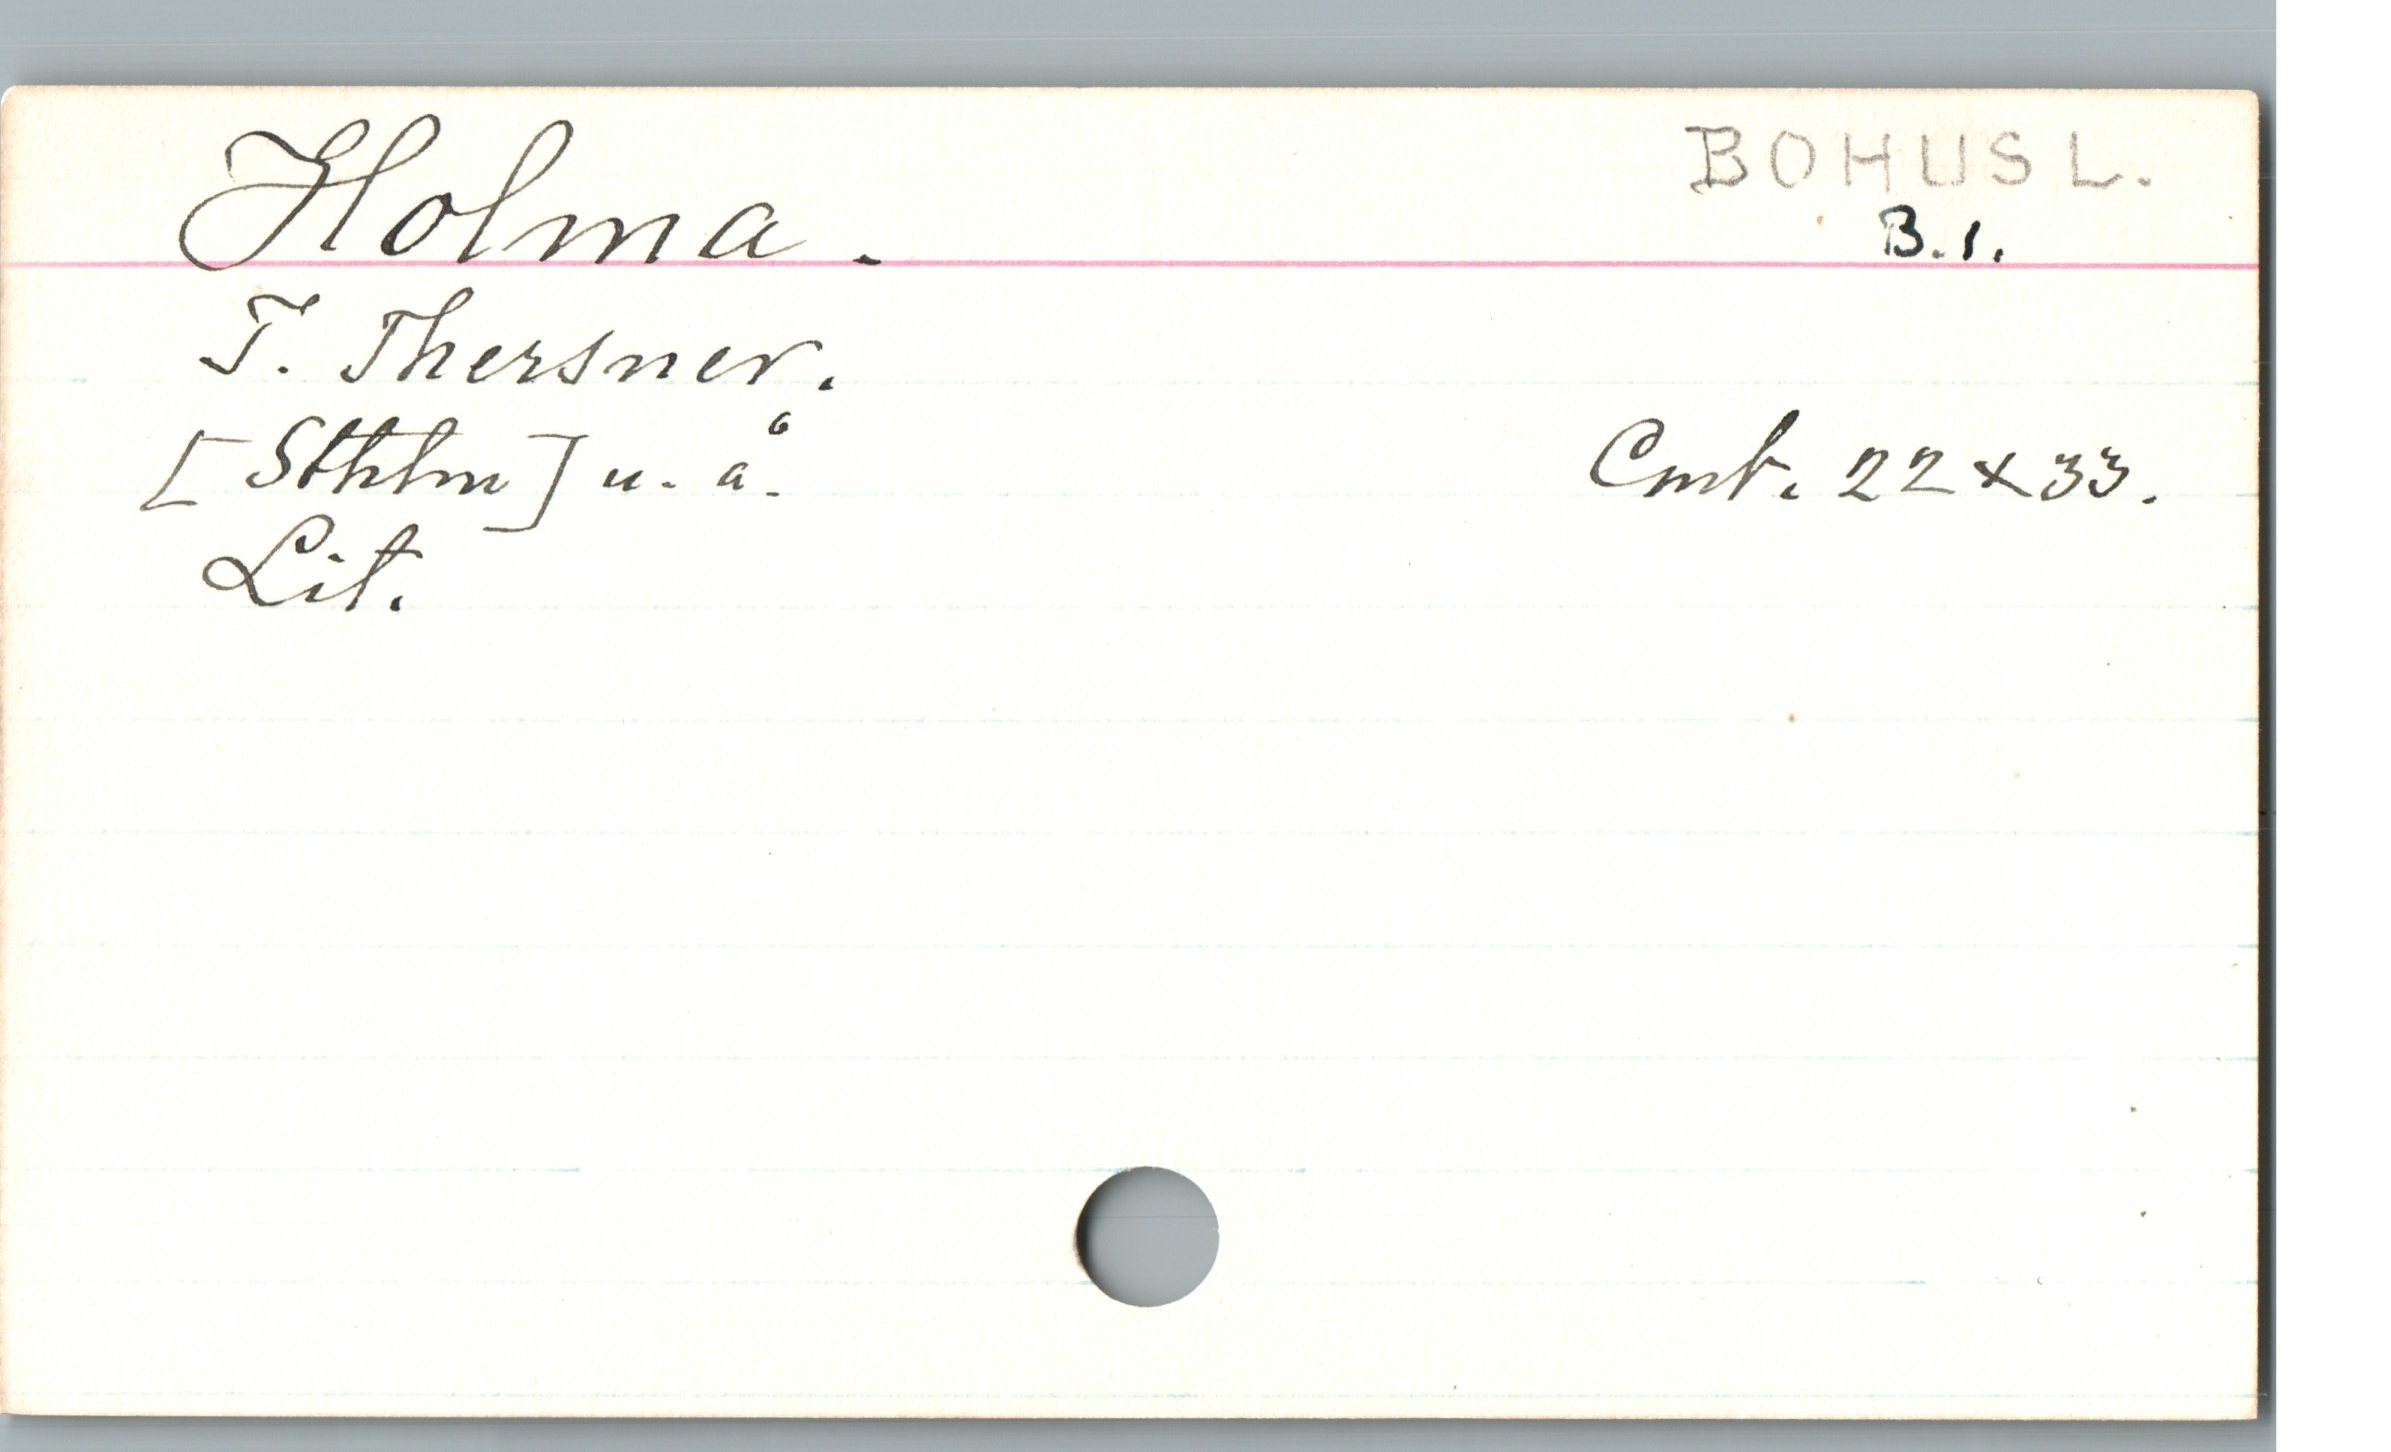 Holma.
BOHUSL.
B.1.
T. Thersner.
[Sthlm] u. å.
Cmt. 22 x 33.
Lit.